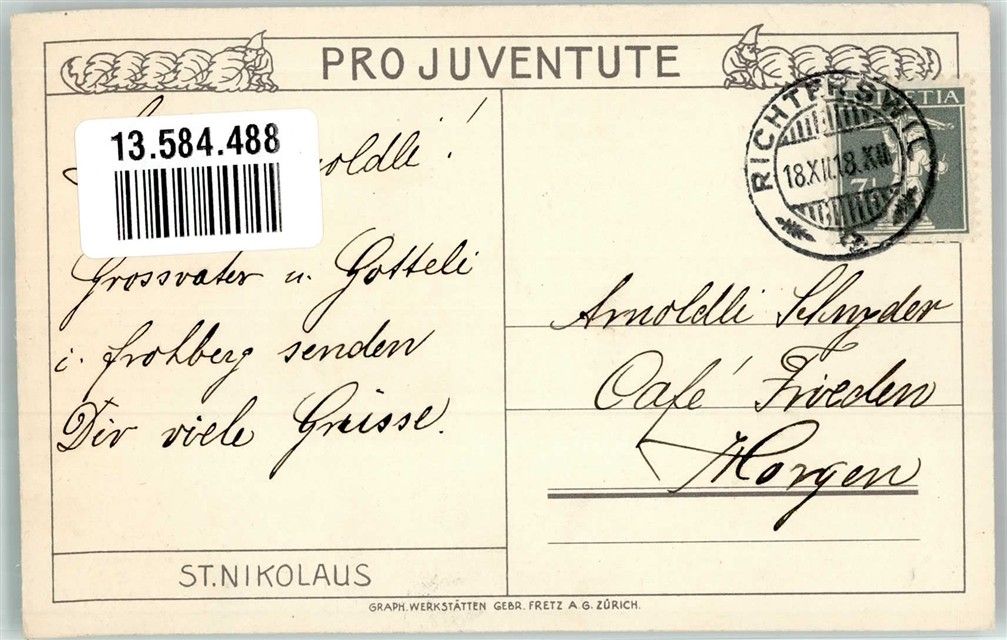 PRO JUVENTUTE
HELVETIA
RICHTERSWIL
18.XII.18.XII
7½
13.584.488
Grossvater u. Gotteli
i. Frohberg senden
Dir viele Grüsse.
Arnoldli Schnyder
Café Frieden
Horgen
ST. NIKOLAUS
GRAPH. WERKSTÄTTEN GEBR. FRETZ A.G. ZÜRICH.